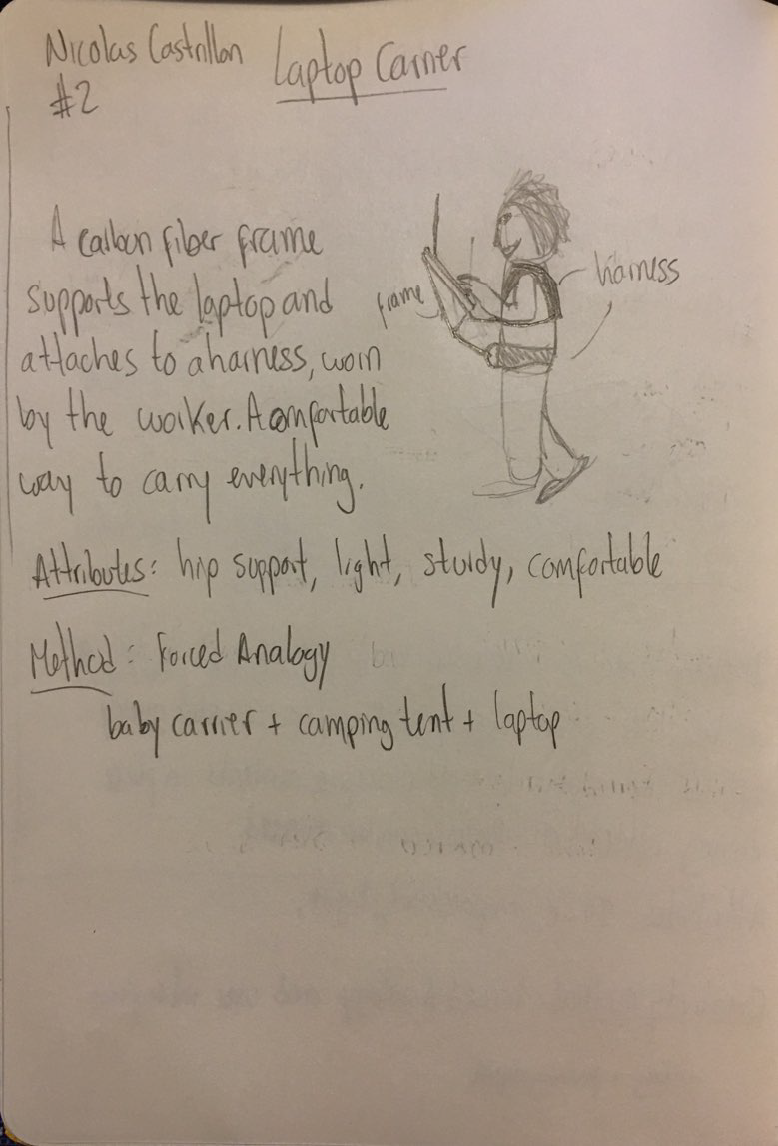 Nicolas Castrillon
#2
Laptop Carrier
A carbon fiber frame
supports the laptop and
attaches to a harness, worn
by the worker. A comfortable
way to carry everything.
frame
harness
Attributes: hip support, light, sturdy, comfortable
Method: Forced Analogy
baby carrier + camping tent + laptop